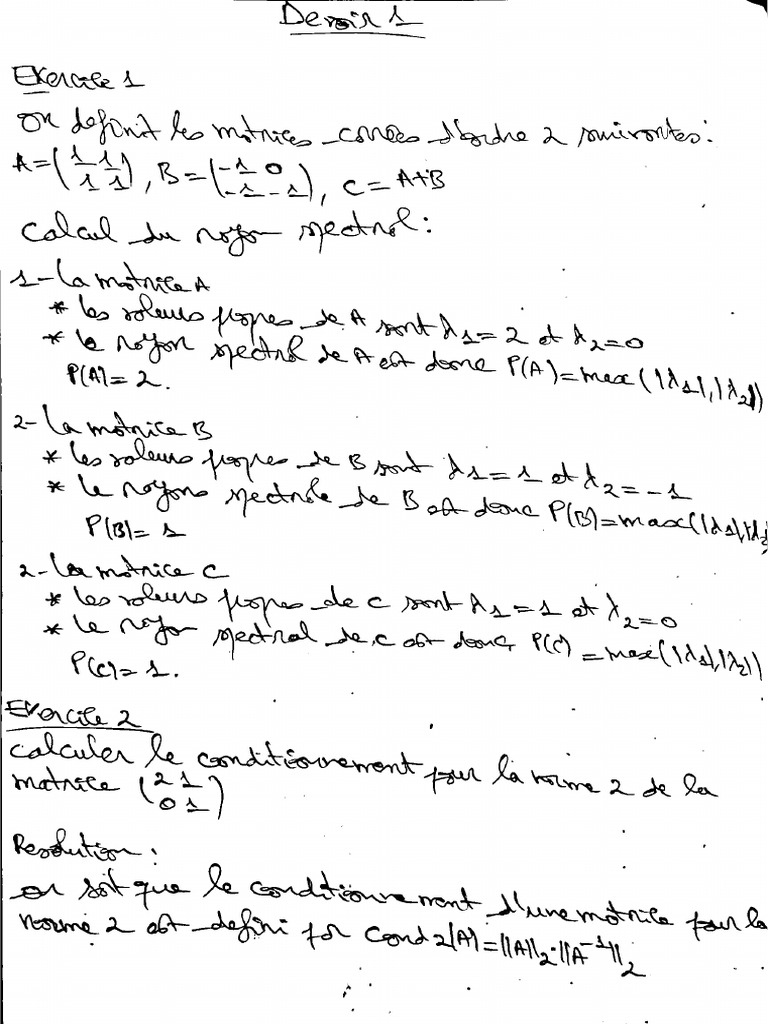 Devoir 1
Exercice 1
On definit les matrices carrées d'ordre 2 suivantes:
A=(1 1
1 1), B=(-1 0
-1 -1), C=A+B
Calcul du rayon spectral:
1-La matrice A
* les valeurs propres de A sont λ1=2 et λ2=0
* le rayon spectral de A est donc P(A)=max(|λ1|,|λ2|)
P(A)=2.
2-La matrice B
* les valeurs propres de B sont λ1=1 et λ2=-1
* le rayons spectrale de B est donc P(B)=max(|λ1|,|λ2
P(B)=1
2-La matrice C
* les valeurs propres de C sont λ1=1 et λ2=0
* le rayon spectral de C est donc P(C)=max(|λ1|,|λ2|)
P(C)=1.
Exercice 2
Calculer le conditionnement pour la norme 2 de la
matrice (2 1
0 1)
Resolution:
on sait que le conditionnement d'une matrice pour la
norme 2 est defini par Cond2(A)=||A||2.||A⁻¹||2